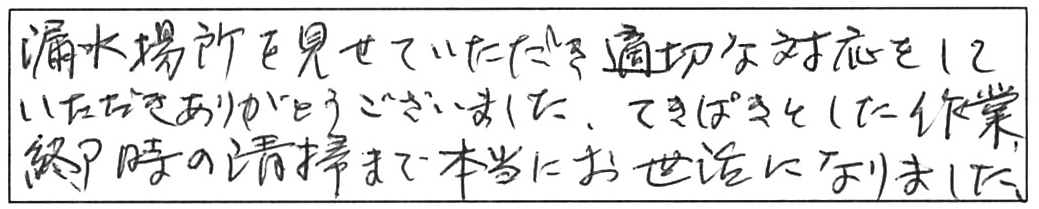 漏水場所を見せていただき適切な対応をして
いただきありがとうございました、てきぱきとした作業、
終了時の清掃まで本当にお世話になりました、